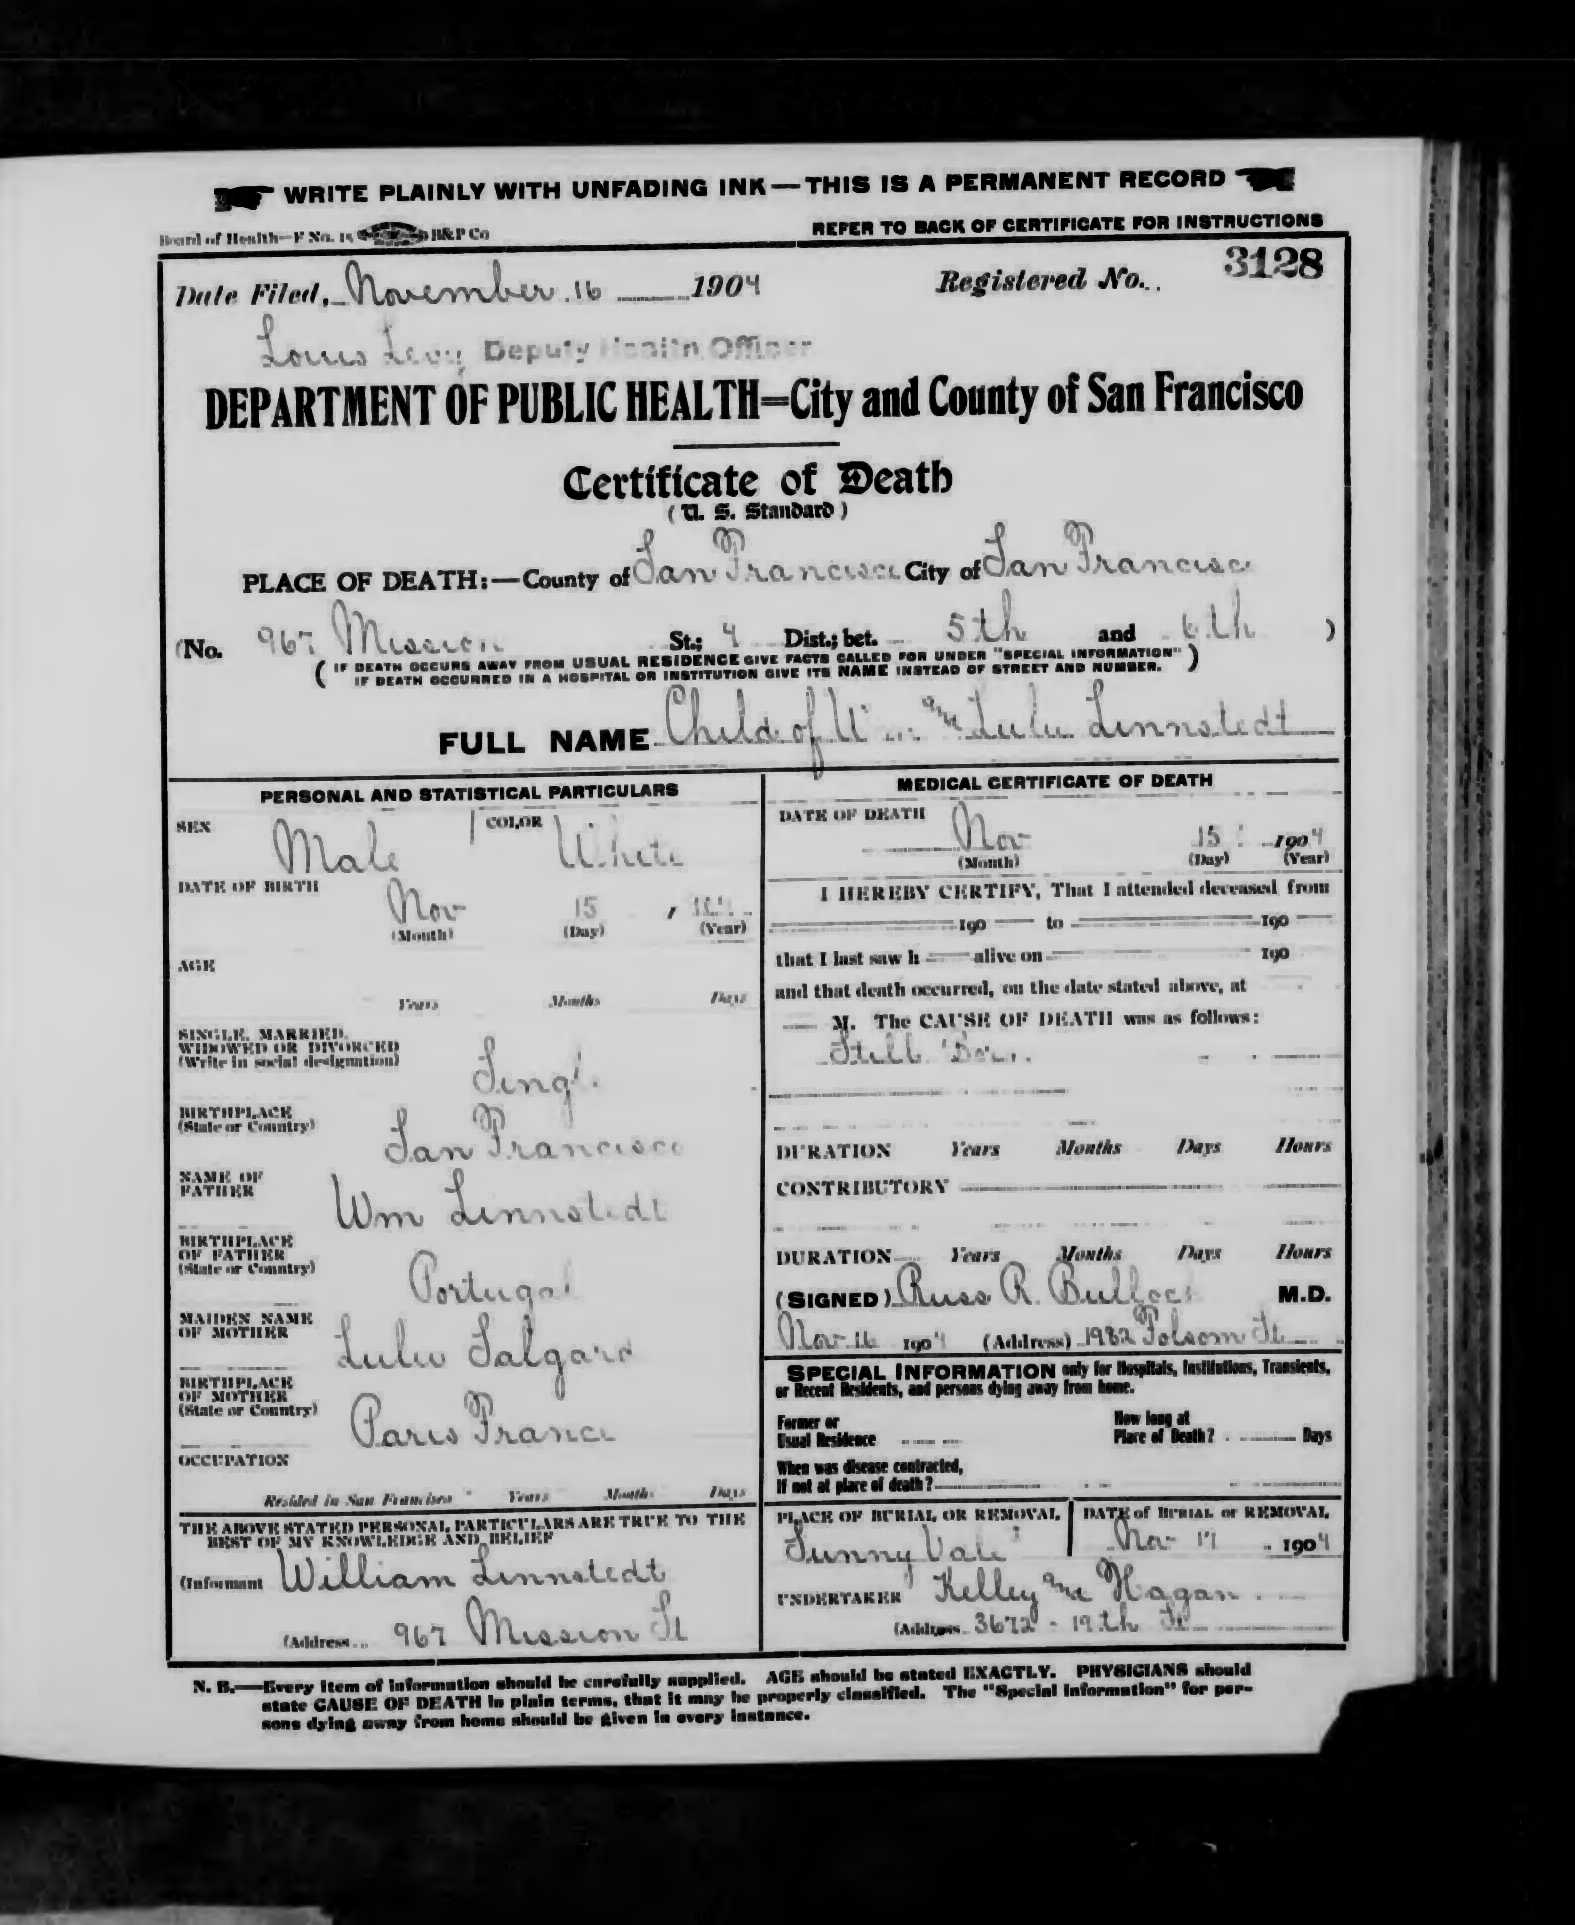 WRITE PLAINLY WITH UNFADING INK—THIS IS A PERMANENT RECORD
Board of Health—F No. 15 B&P Co
REFER TO BACK OF CERTIFICATE FOR INSTRUCTIONS
Date Filed, November 16 1904 Registered No. 3128
Louis Levy Deputy Health Officer
DEPARTMENT OF PUBLIC HEALTH=City and County of San Francisco
Certificate of Death
(U. S. Standard)
PLACE OF DEATH:—County of San Francisco City of San Francisco
(No. 967 Mission St.; 4 Dist.; bet. 5th and 6th )
( IF DEATH OCCURS AWAY FROM USUAL RESIDENCE GIVE FACTS CALLED FOR UNDER "SPECIAL INFORMATION" )
IF DEATH OCCURRED IN A HOSPITAL OR INSTITUTION GIVE ITS NAME INSTEAD OF STREET AND NUMBER.
FULL NAME Child of Wm and Lulu Linnstedt
PERSONAL AND STATISTICAL PARTICULARS
SEX Male COLOR White
DATE OF BIRTH
Nov 15 ,
(Month) (Day) (Year)
AGE
Years Months Days
SINGLE, MARRIED,
WIDOWED OR DIVORCED
(Write in social designation)
Single
BIRTHPLACE
(State or Country)
San Francisco
NAME OF
FATHER
Wm Linnstedt
BIRTHPLACE
OF FATHER
(State or Country)
Portugal
MAIDEN NAME
OF MOTHER
Lulu Salgard
BIRTHPLACE
OF MOTHER
(State or Country)
Paris France
OCCUPATION
Resided in San Francisco Years Months Days
THE ABOVE STATED PERSONAL PARTICULARS ARE TRUE TO THE
BEST OF MY KNOWLEDGE AND BELIEF
(Informant William Linnstedt
(Address 967 Mission St
MEDICAL CERTIFICATE OF DEATH
DATE OF DEATH
Nov 15 1904
(Month) (Day) (Year)
I HEREBY CERTIFY, That I attended deceased from
190 to 190
that I last saw h alive on 190
and that death occurred, on the date stated above, at
M. The CAUSE OF DEATH was as follows:
Still Born
DURATION Years Months Days Hours
CONTRIBUTORY
DURATION Years Months Days Hours
(SIGNED) Russ R. Bullock M.D.
Nov 16 1904 (Address) 1982 Folsom St
SPECIAL INFORMATION only for Hospitals, Institutions, Transients,
or Recent Residents, and persons dying away from home.
Former or
Usual Residence
How long at
Place of Death? Days
When was disease contracted,
If not at place of death?
PLACE OF BURIAL OR REMOVAL
Sunny Vale
DATE of BURIAL or REMOVAL
Nov 17 1904
UNDERTAKER Kelley and Hagan
(Address 3672 - 19th St
N. B.—Every item of information should be carefully supplied. AGE should be stated EXACTLY. PHYSICIANS should
state CAUSE OF DEATH in plain terms, that it may be properly classified. The "Special Information" for per-
sons dying away from home should be given in every instance.